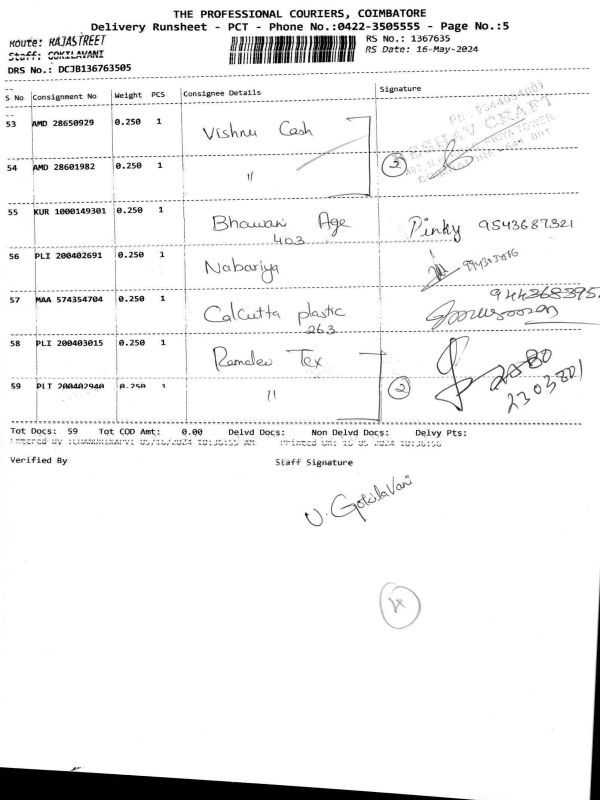 THE PROFESSIONAL COURIERS, COIMBATORE
Delivery Runsheet - PCT - Phone No.:0422-3505555 - Page No.:5
Route: RAJASTREET
RS No.: 1367635
Staff: GOKILAVANI
RS Date: 16-May-2024
DRS No.: DCJB136763505
S No Consignment No Weight PCS Consignee Details Signature
53 AMD 28650929 0.250 1 Vishnu Cash
54 AMD 28601982 0.250 1 "
2
55 KUR 1000149301 0.250 1 Bhawani Age Pinky 9543687321
403
56 PLI 200402691 0.250 1 Nabariya
57 MAA 574354704 0.250 1 Calcutta plastic 944368395
263
58 PLI 200403015 0.250 1 Ramdev Tex
59 PLI 200402940 0.250 1 "
2
2303801
Tot Docs: 59 Tot COD Amt: 0.00 Delvd Docs: Non Delvd Docs: Delvy Pts:
Verified By Staff Signature
V. GokilaVani